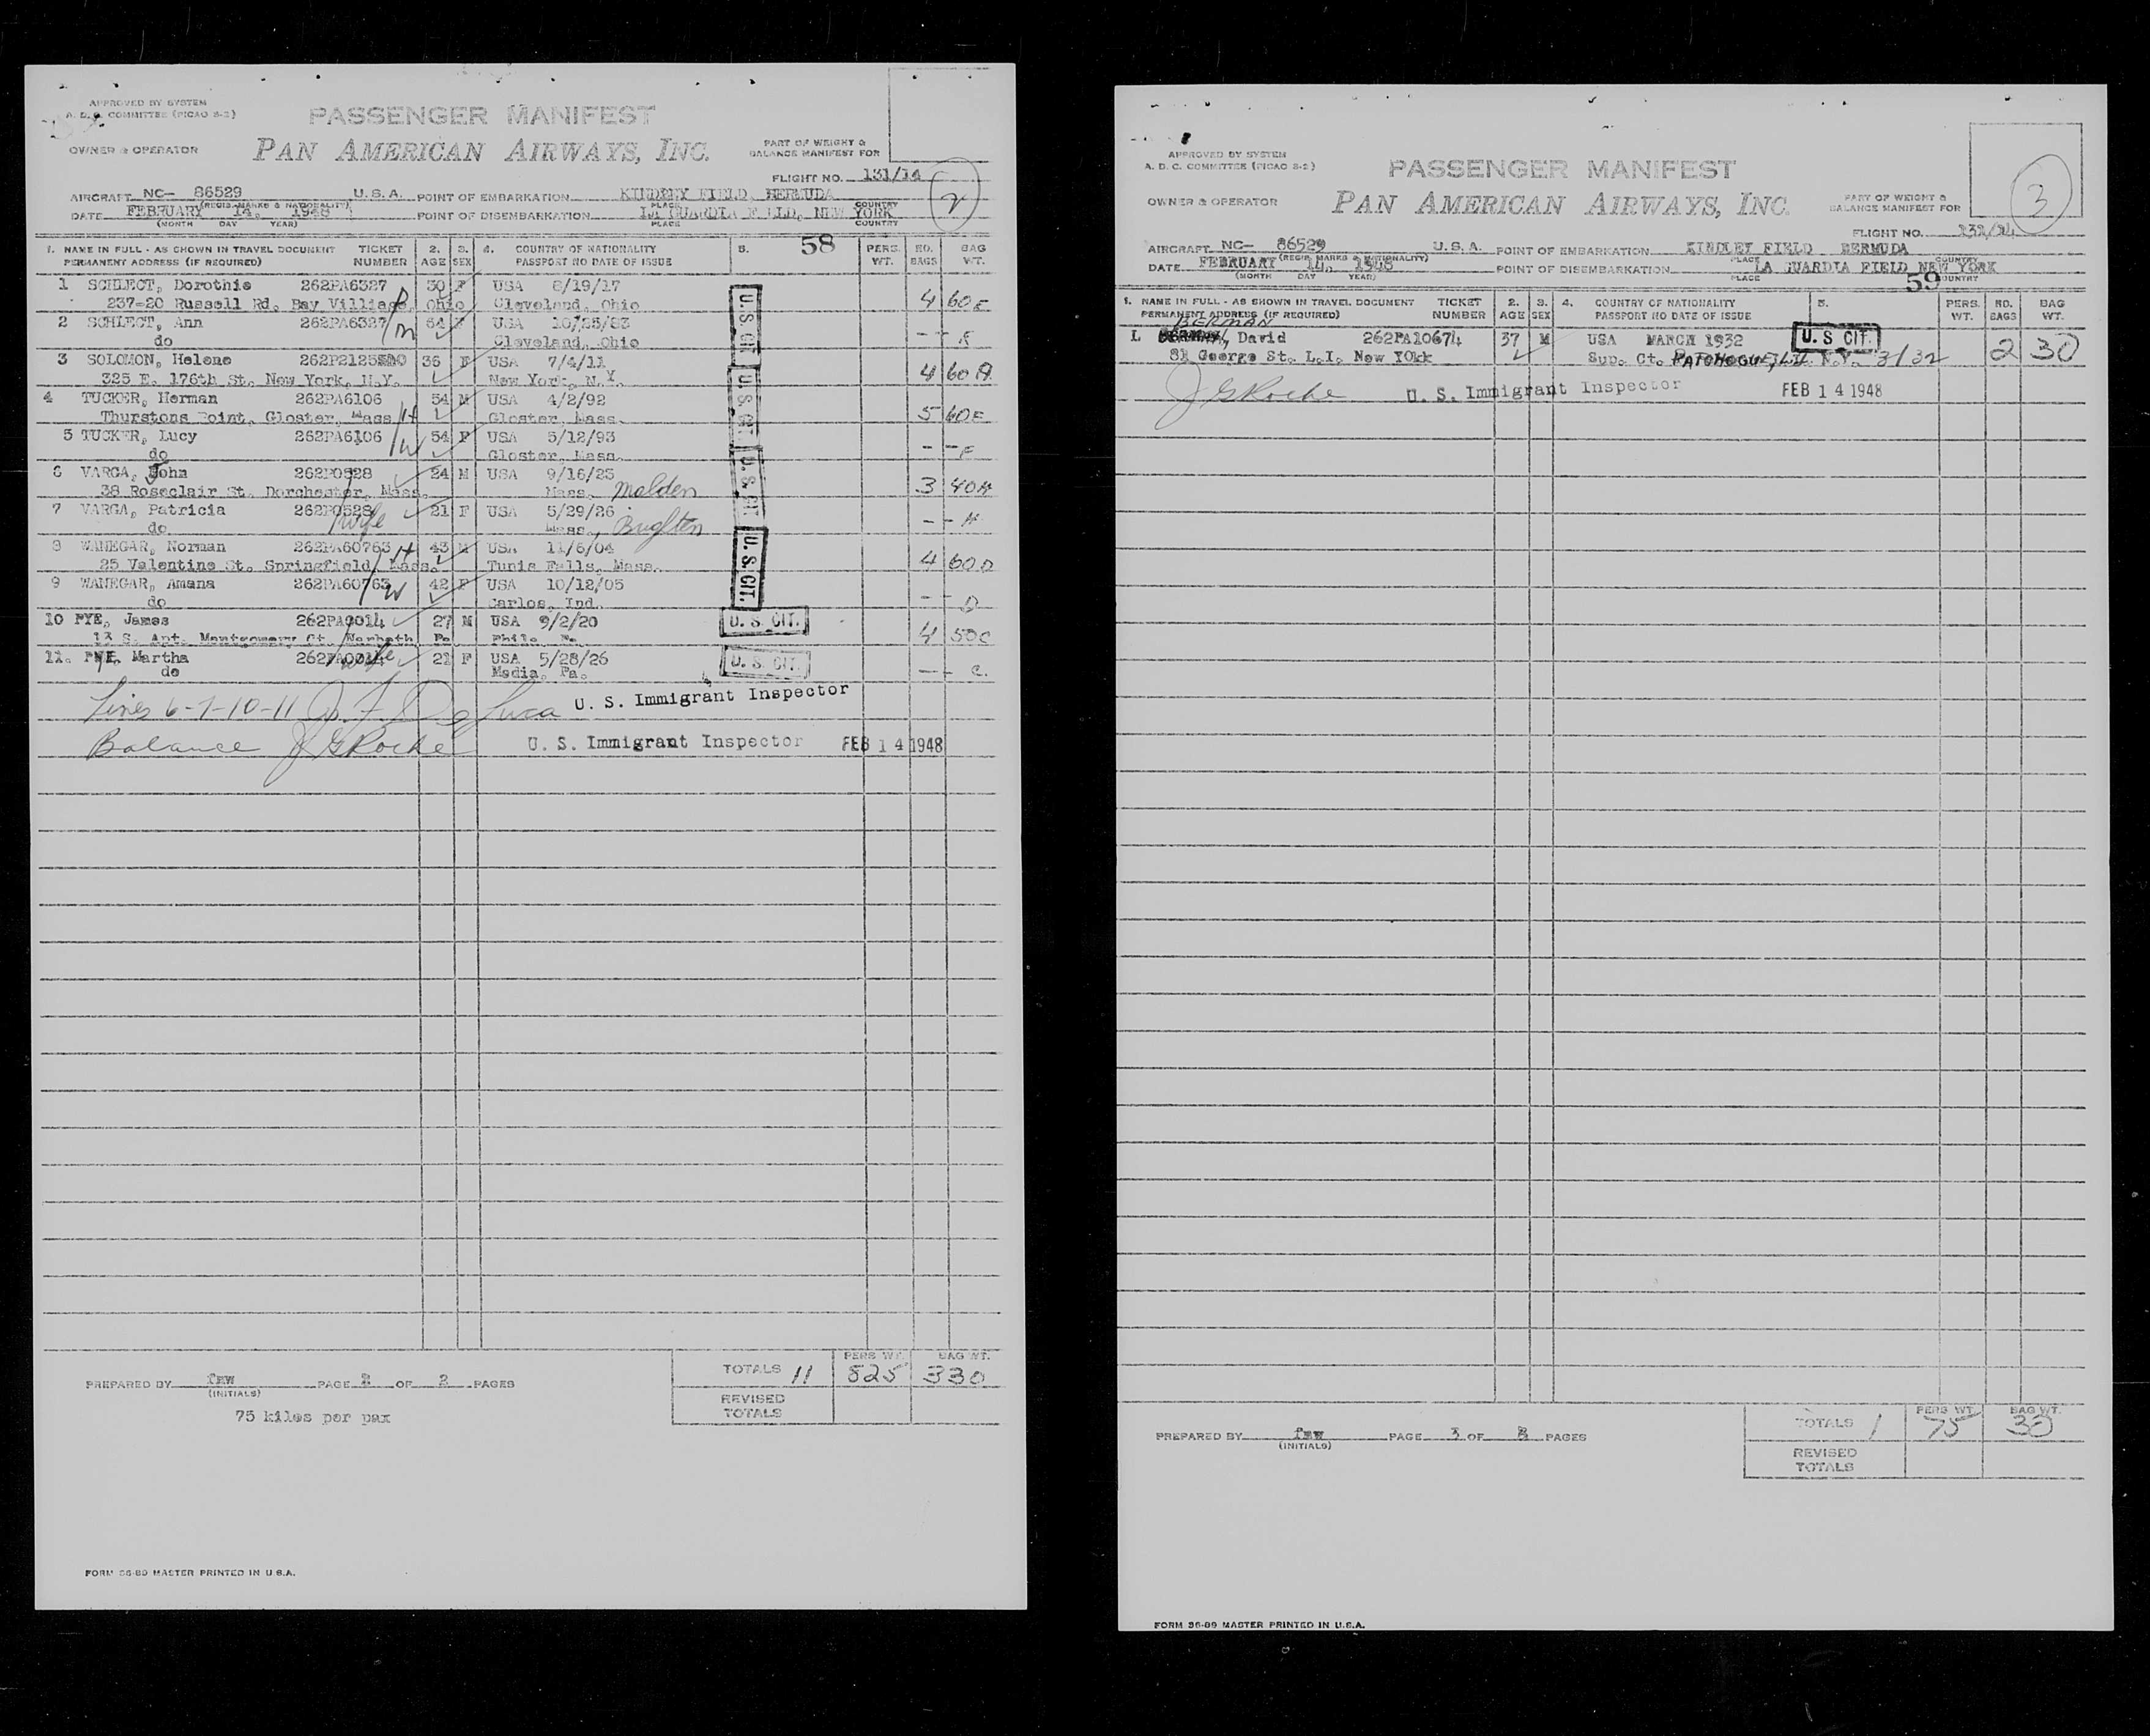 APPROVED BY SYSTEM
A. D. C. COMMITTEE (PICAO S-2)
PASSENGER MANIFEST
OWNER & OPERATOR
PAN AMERICAN AIRWAYS, INC.
PART OF WEIGHT &
BALANCE MANIFEST FOR
FLIGHT NO. 131/14
2
AIRCRAFT NC- 86529 U.S.A. POINT OF EMBARKATION KINDLEY FIELD, BERMUDA
(REGIS. MARKS & NATIONALITY) PLACE COUNTRY
DATE FEBRUARY 14, 1948 POINT OF DISEMBARKATION LA GUARDIA FIELD, NEW YORK
(MONTH DAY YEAR) PLACE COUNTRY
1. NAME IN FULL - AS SHOWN IN TRAVEL DOCUMENT TICKET 2. 3. 4. COUNTRY OF NATIONALITY 5. 58 PERS. NO. BAG
PERMANENT ADDRESS (IF REQUIRED) NUMBER AGE SEX PASSPORT NO DATE OF ISSUE WT. BAGS WT.
1 SCHLECT, Dorothie 262PA6327 30 F USA 8/19/17
237-20 Russell Rd. Bay Village, Ohio Cleveland, Ohio 4 60 E
2 SCHLECT, Ann 262PA6327 M 64 F USA 10/25/83
do Cleveland, Ohio - -
3 SOLOMON, Helene 262P2125 36 F USA 7/4/11
325 E. 176th St. New York, N.Y. New York, N.Y. 4 60 A
4 TUCKER, Herman 262PA6106 54 M USA 4/2/92
Thurstons Point, Gloster, Mass H Gloster, Mass. 5 60 E
5 TUCKER, Lucy 262PA6106 W 54 F USA 5/12/93
do Gloster, Mass. - - F
6 VARGA, John 262P0528 24 M USA 9/16/23
38 Roseclair St. Dorchester, Mass. Mass. Malden 3 40 H
7 VARGA, Patricia 262P0528 wife 21 F USA 5/29/26
do Mass., Brighton - - H
8 WANEGAR, Norman 262PA60763 H 43 M USA 11/6/04
25 Valentine St. Springfield Mass. Tunis Falls, Mass. 4 60 D
9 WANEGAR, Amana 262PA60763 W 42 F USA 10/12/05
do Carlos, Ind. - - D
10 PYE, James 262PA0014 27 M USA 9/2/20
13 S. Apt. Montgomery Ct. Narbeth Pa Phila. Pa. 4 50 C
11. PYE, Martha 262PA0014 wife 21 F USA 5/28/26
do Media, Pa. - - C.
U. S. CIT.
U. S. CIT.
U. S. CIT.
U. S. CIT.
U. S. CIT.
U. S. CIT.
Lines 6-7-10-11 J. F. De Luca U. S. Immigrant Inspector
Balance J G Roche U. S. Immigrant Inspector FEB 14 1948
TOTALS 11 PERS WT. 825 BAG WT. 330
PREPARED BY fmw PAGE 2 OF 2 PAGES
(INITIALS)
REVISED
TOTALS
75 kilos per pax
FORM 36-89 MASTER PRINTED IN U.S.A.
APPROVED BY SYSTEM
A. D. C. COMMITTEE (PICAO S-2)
PASSENGER MANIFEST
OWNER & OPERATOR
PAN AMERICAN AIRWAYS, INC.
PART OF WEIGHT &
BALANCE MANIFEST FOR
3
FLIGHT NO. 131/14
AIRCRAFT NC- 86529 U.S.A. POINT OF EMBARKATION KINDLEY FIELD BERMUDA
(REGIS. MARKS & NATIONALITY) PLACE COUNTRY
DATE FEBRUARY 14, 1948 POINT OF DISEMBARKATION LA GUARDIA FIELD NEW YORK
(MONTH DAY YEAR) PLACE 59 COUNTRY
1. NAME IN FULL - AS SHOWN IN TRAVEL DOCUMENT TICKET 2. 3. 4. COUNTRY OF NATIONALITY 5. PERS. NO. BAG
PERMANENT ADDRESS (IF REQUIRED) NUMBER AGE SEX PASSPORT NO DATE OF ISSUE WT. BAGS WT.
BERMAN
1. David 262PA10674 37 M USA MARCH 1932 U. S CIT.
81 George St. L.I. New YOkk Sup. Ct. PATCHOGUE, L.I. N.Y. 3/32 2 30
J G Roche U. S. Immigrant Inspector FEB 14 1948
TOTALS 1 PERS WT. 75 BAG WT. 30
PREPARED BY fmw PAGE 3 OF PAGES
(INITIALS)
REVISED
TOTALS
FORM 36-89 MASTER PRINTED IN U.S.A.